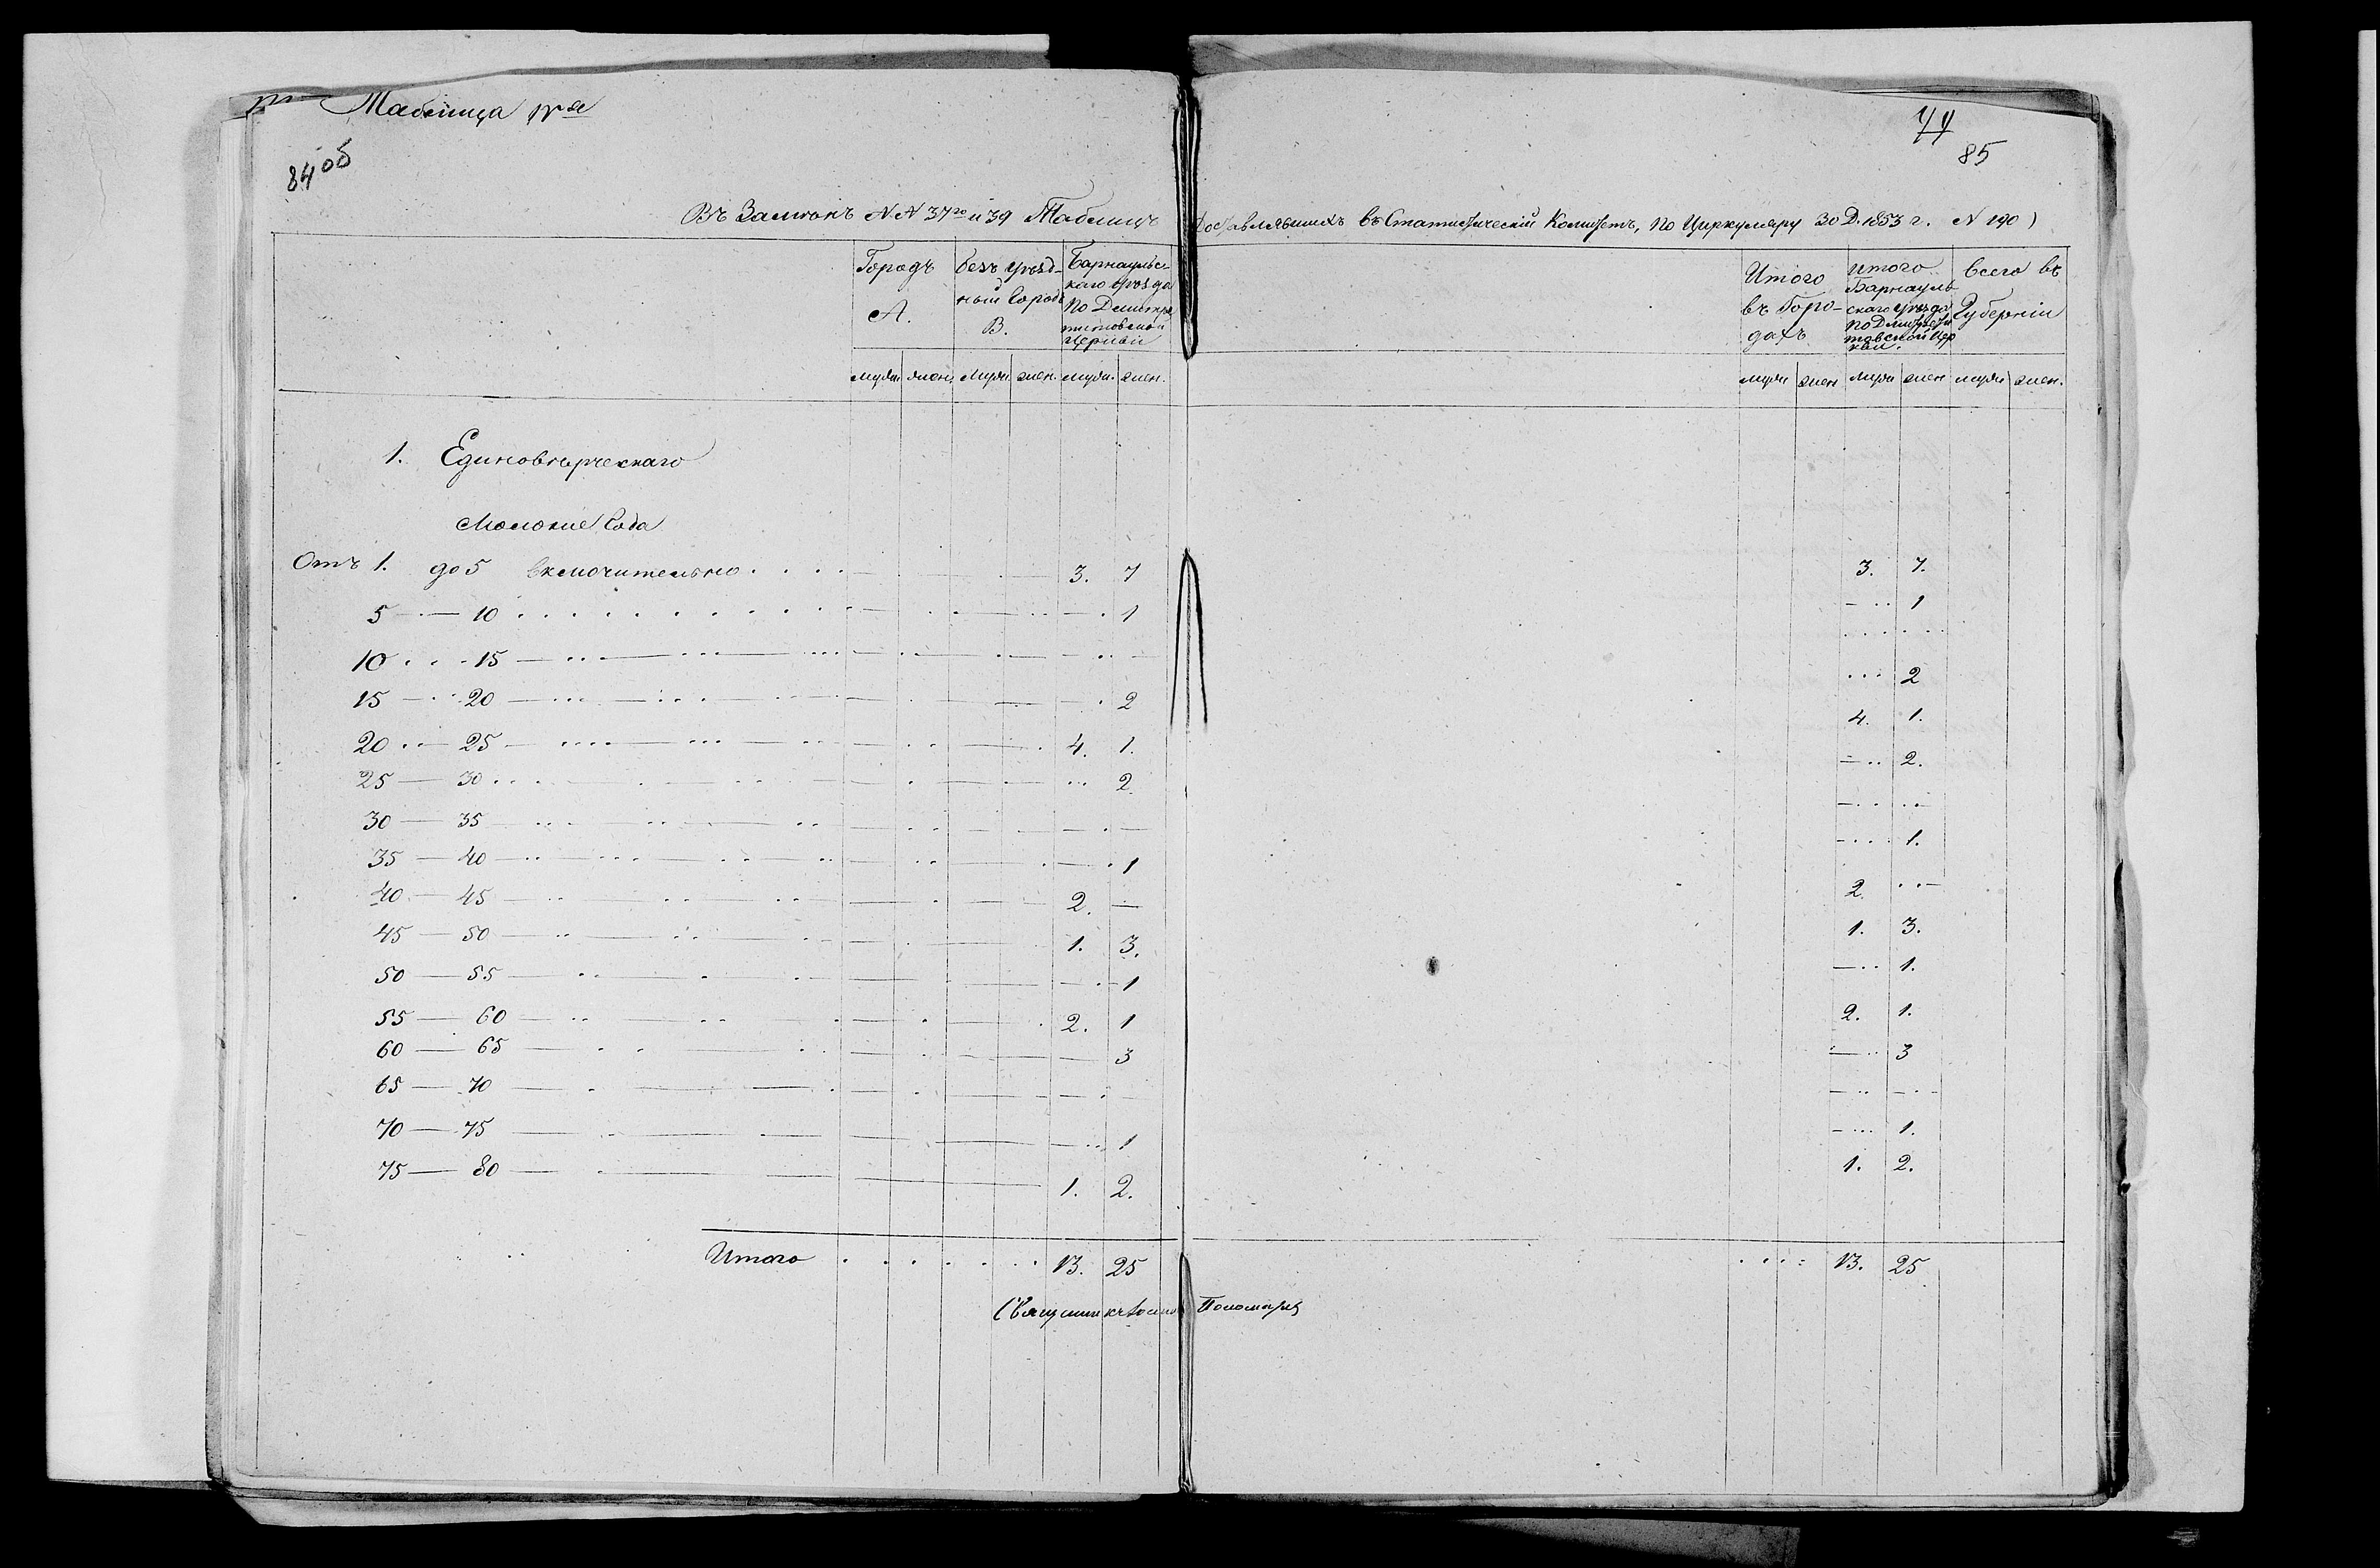 Таблица IV я
84 об
85
Въ Замѣнъ NN 37го и 39 Таблицъ доставлявшихъ въ Статистическій Комитетъ, по Циркуляру 30 Д. 1853 г. N 190)
Городъ А. | Безъ уѣздный Городъ В. | Барнаульскаго уѣзда по Димитретитовской Церкви | Итого въ Городахъ | Итого Барнаульскаго уѣзда по Димитретитовской Церкви. | Всего въ Губерніи
мужи | жен. | мужи | жен. | мужи. | жен. | мужи | жен | мужи | жен | мужи | жен.
1. Единовѣрческаго
Мѣлокие Года
Отъ 1. до 5 включительно . . . . 3. 7 3. 7.
5 — 10 — 1 — 1
10 . . . 15 — — — —
15 — 20 — 2 . . . 2
20 — 25 — 4. 1. 4. 1.
25 — 30 . . . 2. — 2.
30 — 35 — — — —
35 — 40 — 1 — 1.
40 — 45 — 2. — 2. —
45 — 50 — 1. 3. 1. 3.
50 — 55 — 1 — 1.
55 — 60 — 2. 1 2. 1.
60 — 65 — 3 — 3
65 — 70 — — — —
70 — 75 — 1 — 1.
75 — 80 — 1. 2. 1. 2.
Итого . . . . . . . 13. 25 . . . : 13. 25
Священникъ Пономарев